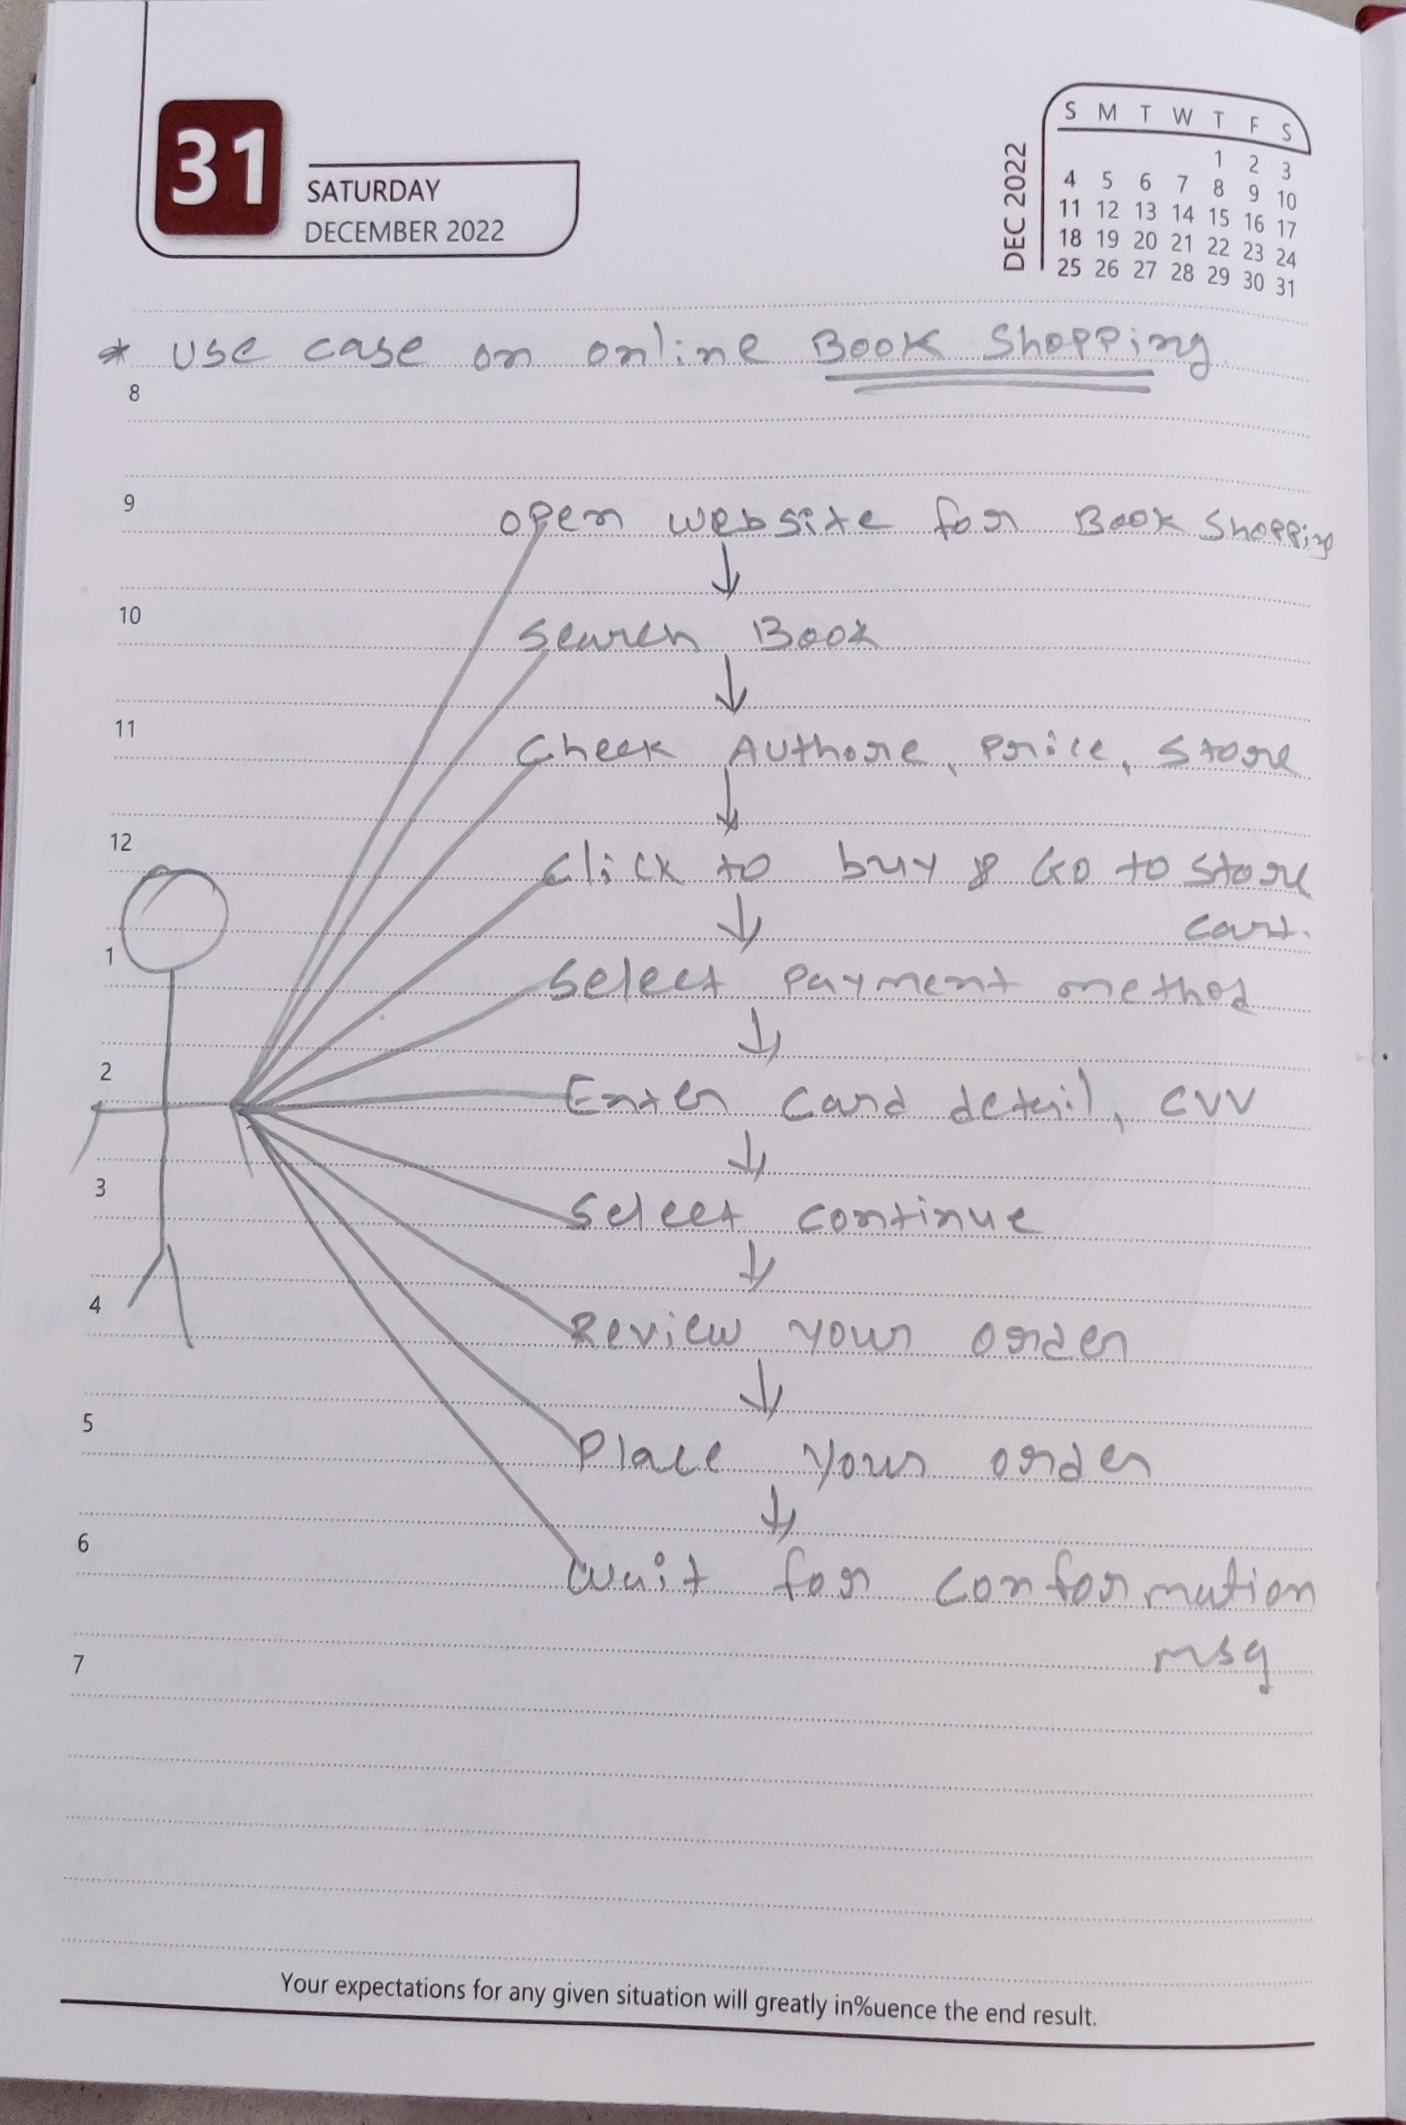 31
SATURDAY
DECEMBER 2022
DEC 2022
S M T W T F S
1 2 3
4 5 6 7 8 9 10
11 12 13 14 15 16 17
18 19 20 21 22 23 24
25 26 27 28 29 30 31
* Use case on online Book Shopping
8
9
open website for Book Shopping
↓
10
Search Book
↓
11
Check Authore, Price, Store
↓
12
Click to buy & Go to Store
↓
cart.
1
Select Payment method
↓
2
Enter Card detail, CVV
↓
3
Select continue
↓
4
Review your order
↓
5
Place your order
↓
6
Wait for conformation
msg
7
Your expectations for any given situation will greatly in%uence the end result.